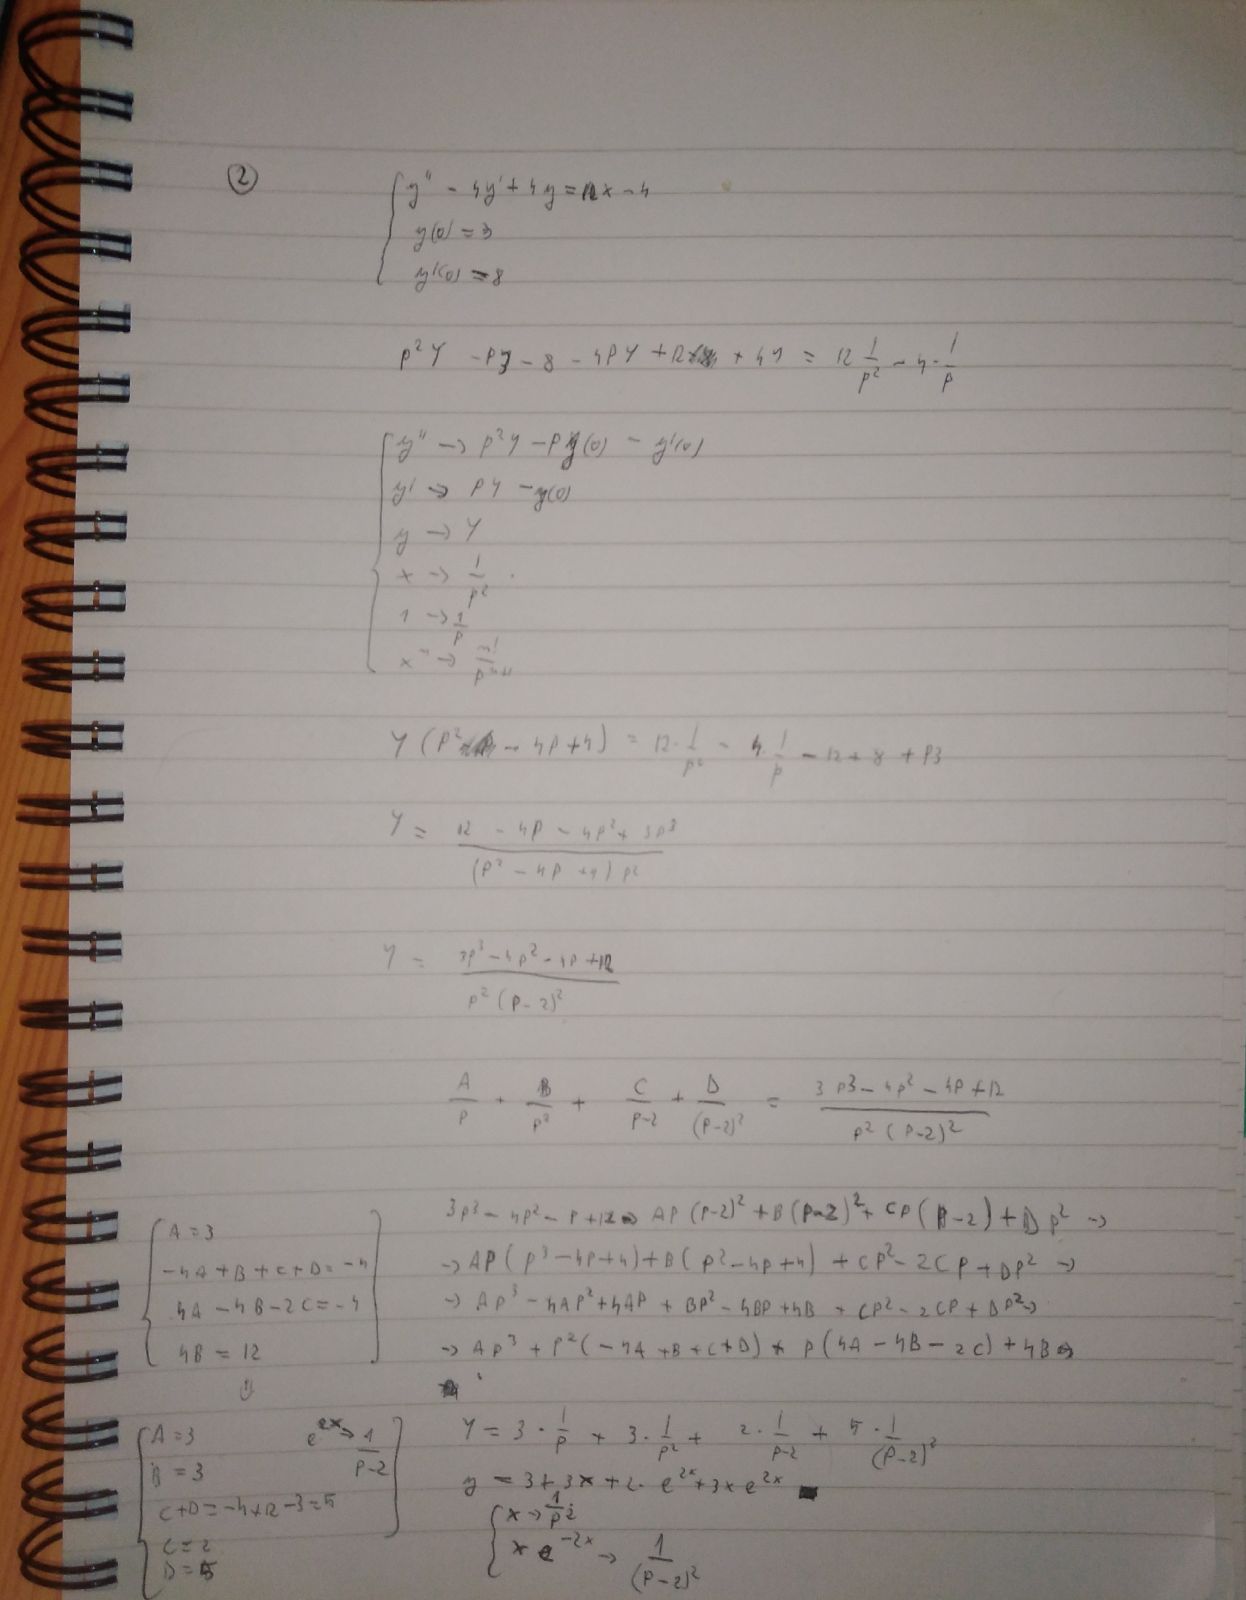 ②
y'' - 4y' + 4y = 12x - 4
y(0) = 3
y'(0) = 8
p²Y - p3 - 8 - 4pY + 12 + 4Y = 12 1/p² - 4 · 1/p
y'' → p²Y - py(0) - y'(0)
y' → pY - y(0)
y → Y
x → 1/p²
1 → 1/p
xⁿ → n!/pⁿ⁺¹
Y (p² - 4p + 4) = 12 · 1/p² - 4 · 1/p - 12 + 8 + p3
Y = (12 - 4p - 4p² + 3p³)/((p² - 4p + 4) p²)
Y = (3p³ - 4p² - 4p + 12)/(p² (p - 2)²)
A/p + B/p² + C/(p-2) + D/(p-2)² = (3p³ - 4p² - 4p + 12)/(p² (p-2)²)
3p³ - 4p² - p + 12 → Ap (p-2)² + B (p-2)² + Cp (p-2) + Dp² →
→ Ap (p³ - 4p + 4) + B (p² - 4p + 4) + Cp² - 2Cp + Dp² →
→ Ap³ - 4Ap² + 4Ap + Bp² - 4Bp + 4B + Cp² - 2Cp + Dp² →
→ Ap³ + p² (-4A + B + C + D) + p (4A - 4B - 2C) + 4B →
A = 3
-4A + B + C + D = -4
4A - 4B - 2C = -4
4B = 12
A = 3
B = 3
C + D = -4 + 12 - 3 = 5
C = 2
D = 5
e²ˣ → 1/(p-2)
Y = 3 · 1/p + 3 · 1/p² + 2 · 1/(p-2) + 5 · 1/(p-2)²
y = 3 + 3x + 2 · e²ˣ + 3xe²ˣ
x → 1/p²
xe⁻²ˣ → 1/(p-2)²